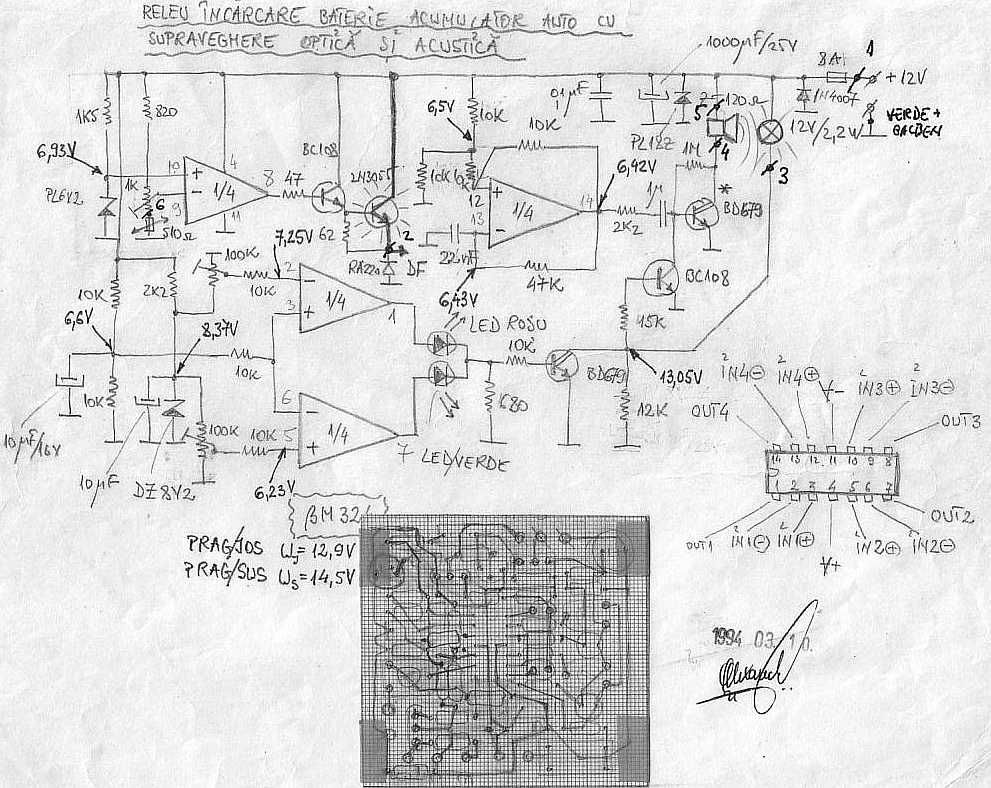 RELEU ÎNCĂRCARE BATERIE ACUMULATOR AUTO CU
SUPRAVEGHERE OPTICĂ ȘI ACUSTICĂ
1000µF/25V
8A
1
+ 12V
1K5
820
6,5V
10K
0,1µF
10K
5
120Ω
1N4007
VERDE +
GALBEN
12V/2,2W
PL18Z
6,93V
BC108
2N3055
10K
10K
6,42V
1M
4
3
10
+
-
9
1/4
4
11
8
47
PL6V2
1K
6
510Ω
62
2
DF
RA220
+
12
-
13
1/4
14
1µ
2K2
*
BD679
22nF
47K
6,43V
BC108
100K
7,25V
10K
2K2
10K
2
-
3
+
1/4
1
6,6V
8,37V
LED ROȘU
10K
15K
BD679
13,05V
10K
10K
680
12K
10µF/16V
10µF
DZ8V2
100K
10K
6
-
5
+
1/4
7
LED/VERDE
6,23V
IN4⊖
IN4⊕
V-
IN3⊕
IN3⊖
OUT4
OUT3
14 13 12 11 10 9 8
1 2 3 4 5 6 7
OUT1
IN1⊖
IN1⊕
V+
IN2⊕
IN2⊖
OUT2
βM324
PRAG/JOS Uj = 12,9V
PRAG/SUS Us = 14,5V
1994 03. 10.